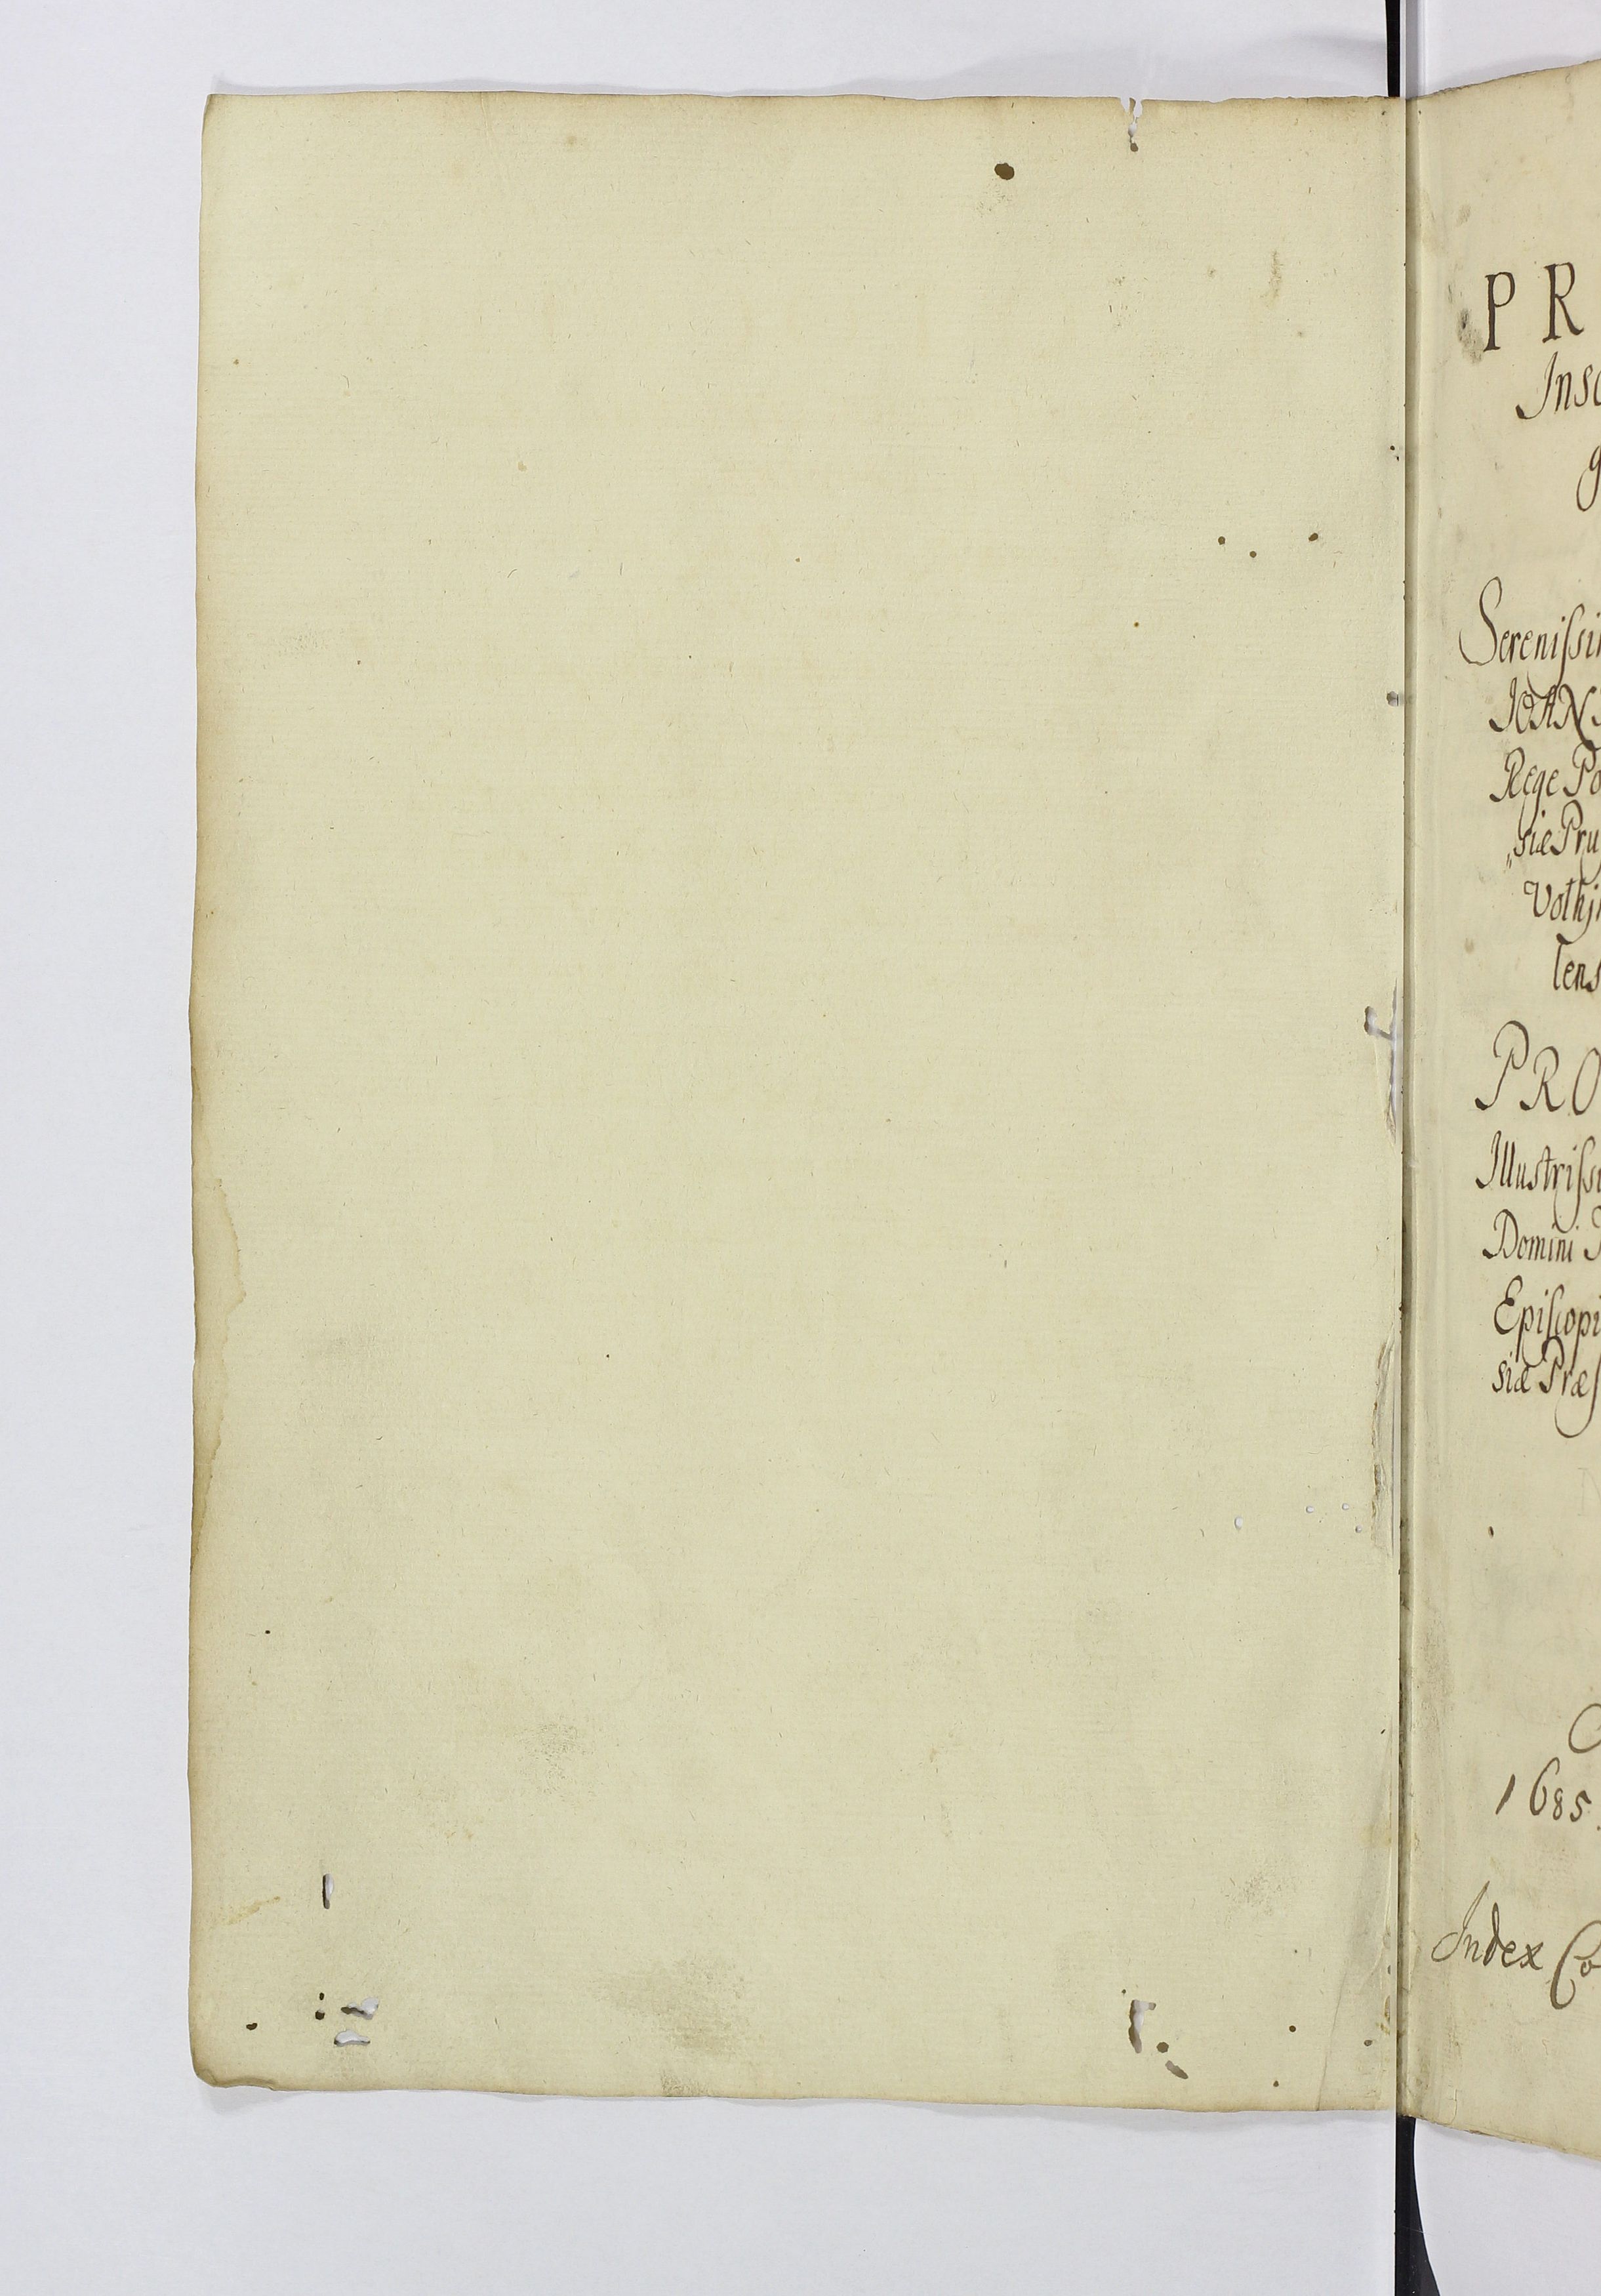 PR
Insc
g
Serenissi
IOAN
Rege Po
„siæ Prus
Volhi
lens
PRO
Illustrissi
Domini
Episcopi
siæ Præs
1685.
Index Co